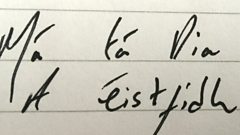 Má tá Dia
A éistfidh